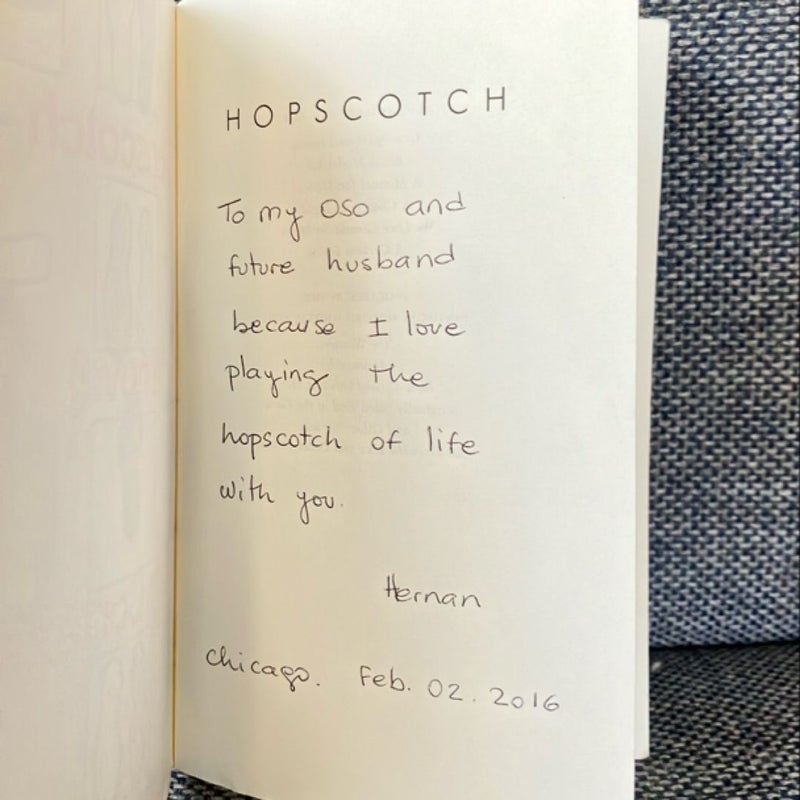 HOPSCOTCH
To my oso and
future husband
because I love
playing the
hopscotch of life
with you.
Hernan
Chicago. Feb. 02. 2016